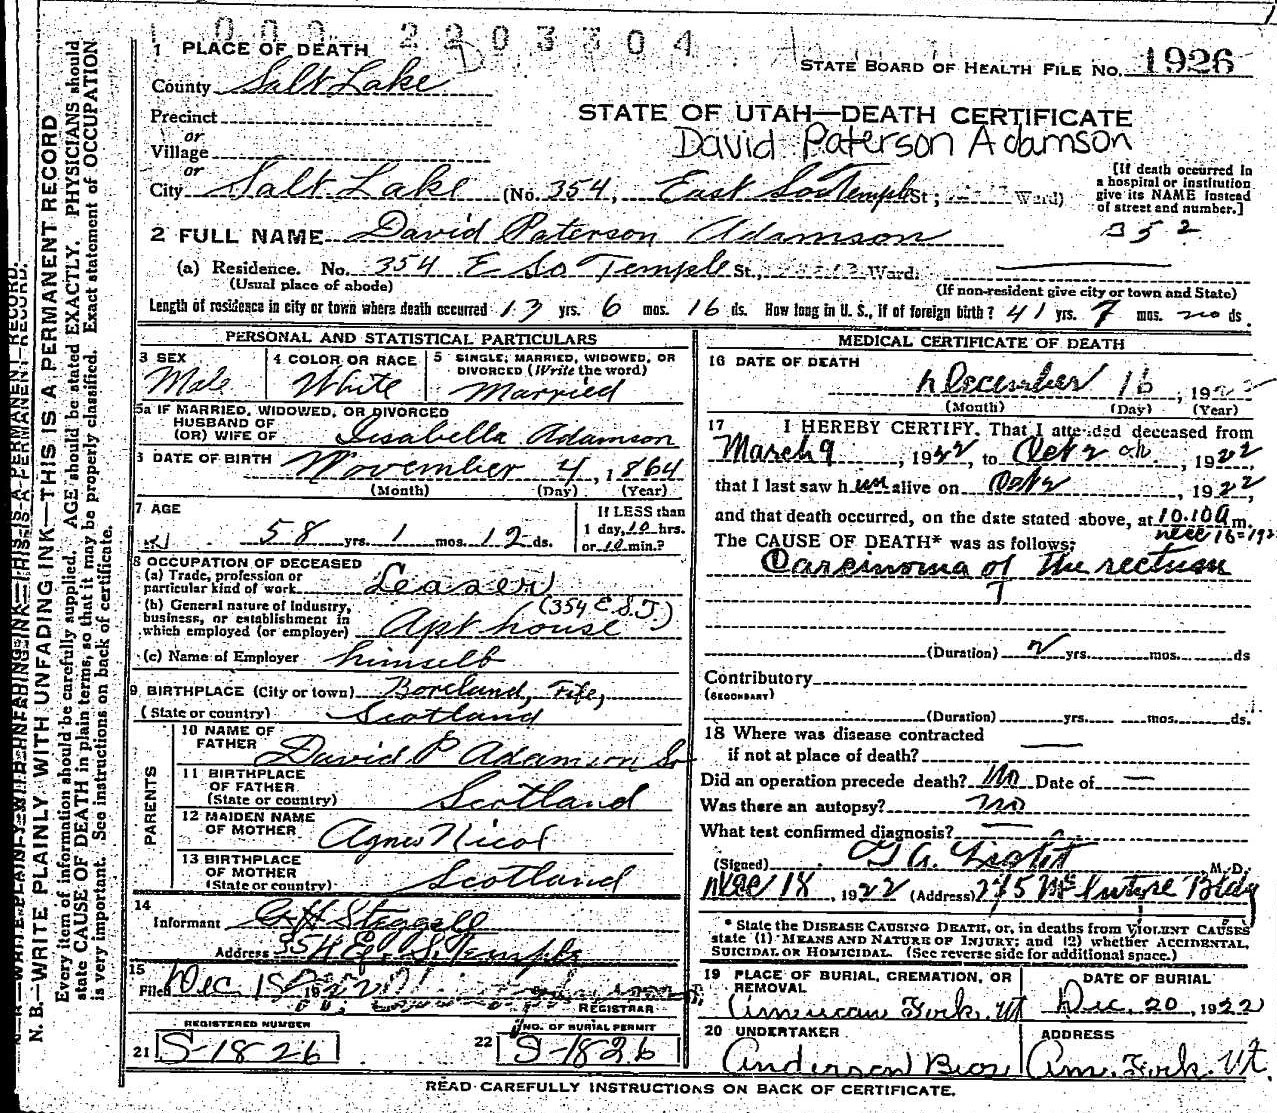 000 2203304
STATE BOARD OF HEALTH FILE NO. 1926
1 PLACE OF DEATH
County Salt Lake
STATE OF UTAH—DEATH CERTIFICATE
David Paterson Adamson
Precinct
or
Village
or
City Salt Lake (No. 354, East So Temple St; Ward)
[If death occurred in a hospital or institution give its NAME instead of street and number.]
352
2 FULL NAME David Paterson Adamson
(a) Residence. No. 354 E So Temple St., Ward.
(Usual place of abode) (If non-resident give city or town and State)
Length of residence in city or town where death occurred 13 yrs. 6 mos. 16 ds. How long in U. S., if of foreign birth? 41 yrs. 7 mos. no ds.
PERSONAL AND STATISTICAL PARTICULARS
3 SEX Male
4 COLOR OR RACE White
5 SINGLE, MARRIED, WIDOWED, OR DIVORCED (Write the word) Married
5a IF MARRIED, WIDOWED, OR DIVORCED
HUSBAND OF
(OR) WIFE OF Isabella Adamson
DATE OF BIRTH November 4, 1864
(Month) (Day) (Year)
7 AGE 58 yrs. 1 mos. 12 ds.
If LESS than
1 day, 10 hrs.
or 10 min.?
8 OCCUPATION OF DECEASED
(a) Trade, profession or
particular kind of work Leaser
(b) General nature of Industry,
business, or establishment in
which employed (or employer) Apt house (354 E.S.T.)
(c) Name of Employer himself
9 BIRTHPLACE (City or town) Boreland, Fife,
(State or country) Scotland
PARENTS
10 NAME OF FATHER David P Adamson Sr
11 BIRTHPLACE OF FATHER (State or country) Scotland
12 MAIDEN NAME OF MOTHER Agnes Nicol
13 BIRTHPLACE OF MOTHER (State or country) Scotland
14
Informant G H Steggell
Address 354 E. S. Temple
15
Filed Dec 18 1922
REGISTRAR
REGISTERED NUMBER
21 S-1826
NO. OF BURIAL PERMIT
22 S-1826
MEDICAL CERTIFICATE OF DEATH
16 DATE OF DEATH
December 16, 192
(Month) (Day) (Year)
17 I HEREBY CERTIFY, That I attended deceased from
March 9, 1922, to Oct 2, 1922,
that I last saw him alive on Oct 2, 1922,
and that death occurred, on the date stated above, at 10.10a m.
Dec 16-192
The CAUSE OF DEATH* was as follows:
Carcinoma of the rectum
(Duration) 2 yrs. mos. ds
Contributory
(SECONDARY)
(Duration) yrs. mos. ds.
18 Where was disease contracted
if not at place of death?
Did an operation precede death? No Date of —
Was there an autopsy? no
What test confirmed diagnosis?
(Signed) M. D.
Dec 18, 1922 (Address) 275 McIntyre Bldg
* State the DISEASE CAUSING DEATH, or, in deaths from VIOLENT CAUSES
state (1) MEANS AND NATURE OF INJURY; and (2) whether ACCIDENTAL,
SUICIDAL OR HOMICIDAL. (See reverse side for additional space.)
19 PLACE OF BURIAL, CREMATION, OR REMOVAL
American Fork. Ut
DATE OF BURIAL
Dec. 20, 1922
20 UNDERTAKER
Anderson Bros
ADDRESS
Am. Fork. Ut.
READ CAREFULLY INSTRUCTIONS ON BACK OF CERTIFICATE.
N. B.—WRITE PLAINLY WITH UNFADING INK—THIS IS A PERMANENT RECORD
Every item of information should be carefully supplied. AGE should be stated EXACTLY. PHYSICIANS should
state CAUSE OF DEATH in plain terms, so that it may be properly classified. Exact statement of OCCUPATION
is very important. See instructions on back of certificate.